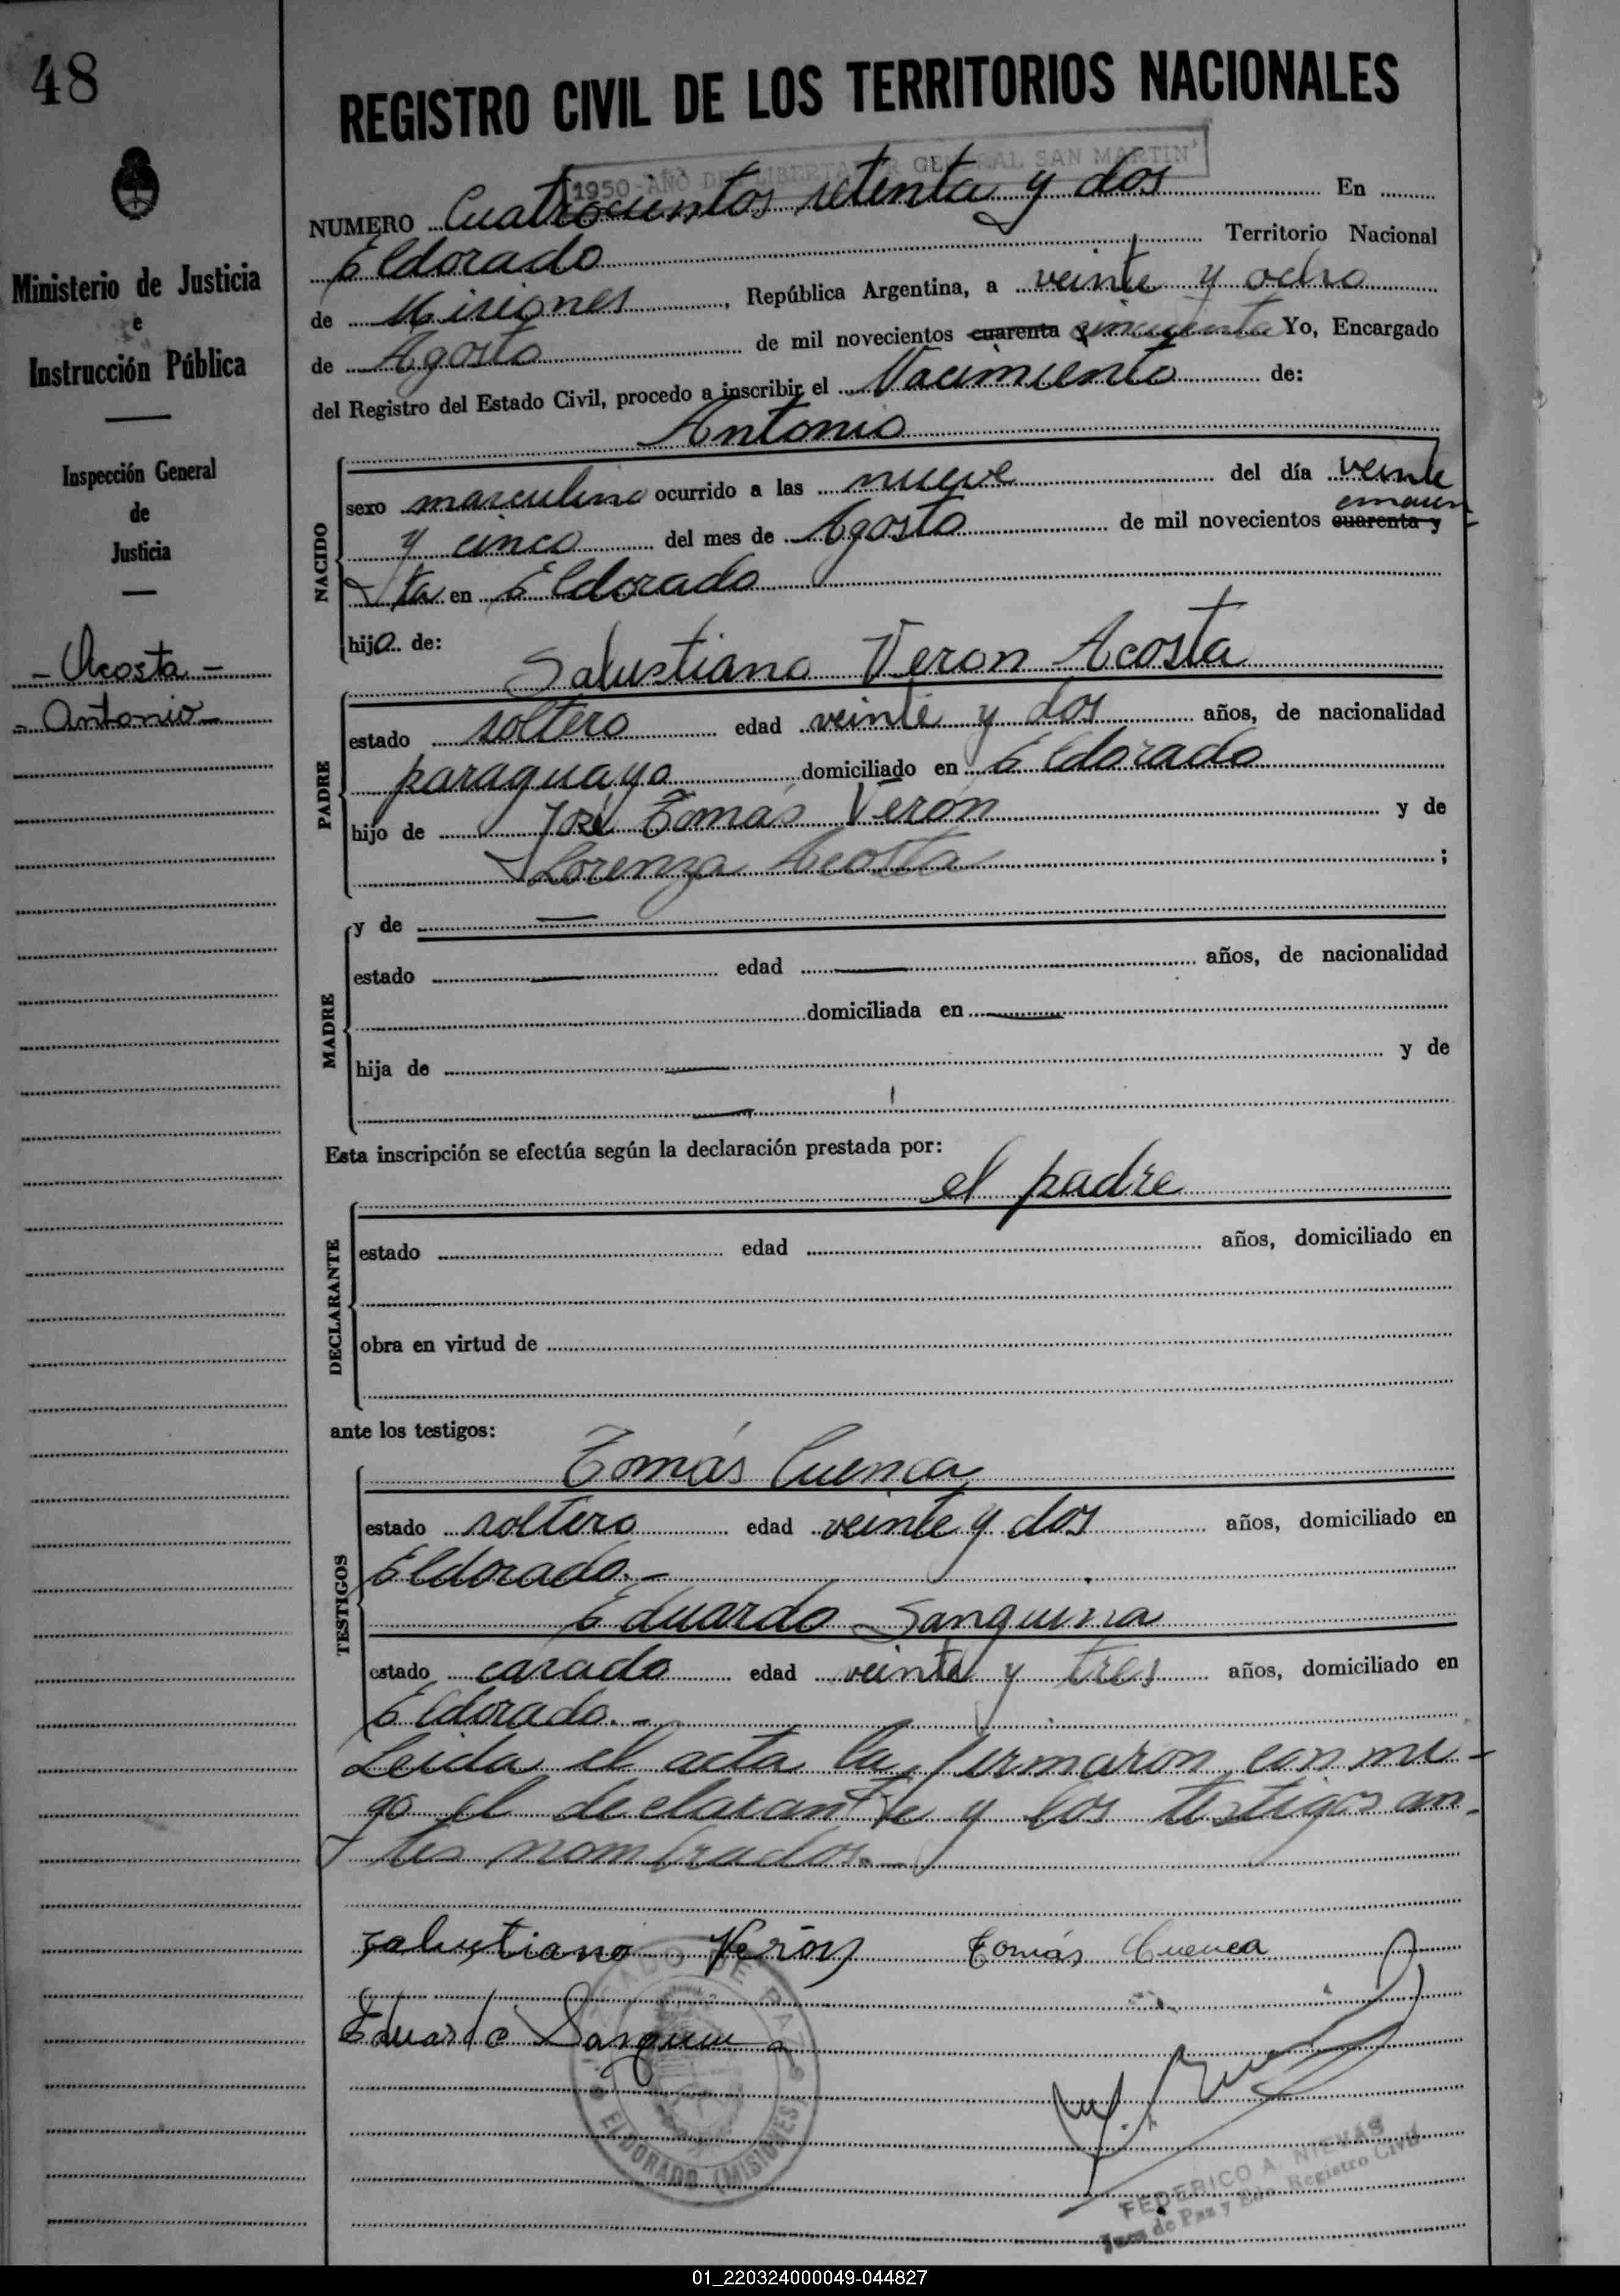 48
REGISTRO CIVIL DE LOS TERRITORIOS NACIONALES
1950 - AÑO DEL LIBERTADOR GENERAL SAN MARTIN
NUMERO Cuatrocientos setenta y dos En
Eldorado Territorio Nacional
de Misiones, República Argentina, a veinte y ocho
de Agosto de mil novecientos cuarenta y cincuenta Yo, Encargado
del Registro del Estado Civil, procedo a inscribir el Nacimiento de:
Antonio
Ministerio de Justicia
e
Instrucción Pública
Inspección General
de
Justicia
- Acosta -
- Antonio -
NACIDO
sexo masculino ocurrido a las nueve del día veinte
y cinco del mes de Agosto de mil novecientos cuarenta y cincuen
ta en Eldorado
hijo de:
Salustiano Veron Acosta
PADRE
estado soltero edad veinte y dos años, de nacionalidad
paraguayo domiciliado en Eldorado
hijo de José Tomás Verón y de
Lorenza Acosta ;
MADRE
y de
estado edad años, de nacionalidad
domiciliada en
hija de y de
Esta inscripción se efectúa según la declaración prestada por:
el padre
DECLARANTE
estado edad años, domiciliado en
obra en virtud de
ante los testigos:
TESTIGOS
Tomás Cuenca
estado soltero edad veinte y dos años, domiciliado en
Eldorado.-
Eduardo Sanguina
estado casado edad veinte y tres años, domiciliado en
Eldorado.-
Leida el acta la firmaron conmi-
go el declarante y los testigos an-
tes nombrados.-
Salustiano Verón Tomás Cuenca
Eduardo Sanguina
JUZGADO DE PAZ
ELDORADO (MISIONES)
FEDERICO A. NIEVAS
Juez de Paz y Edo. Registro Civil
01_220324000049-044827